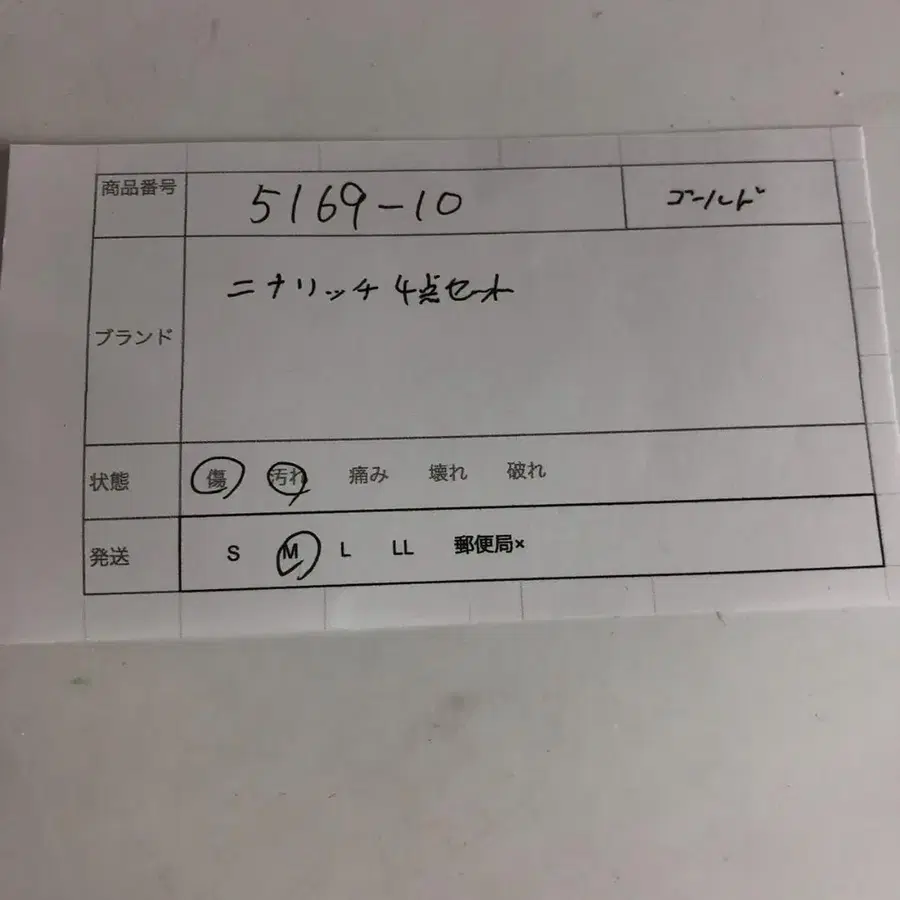 商品番号 5169-10 ゴールド
ブランド ニナリッチ4点セット
状態 傷 汚れ 痛み 壊れ 破れ
発送 S M L LL 郵便局×